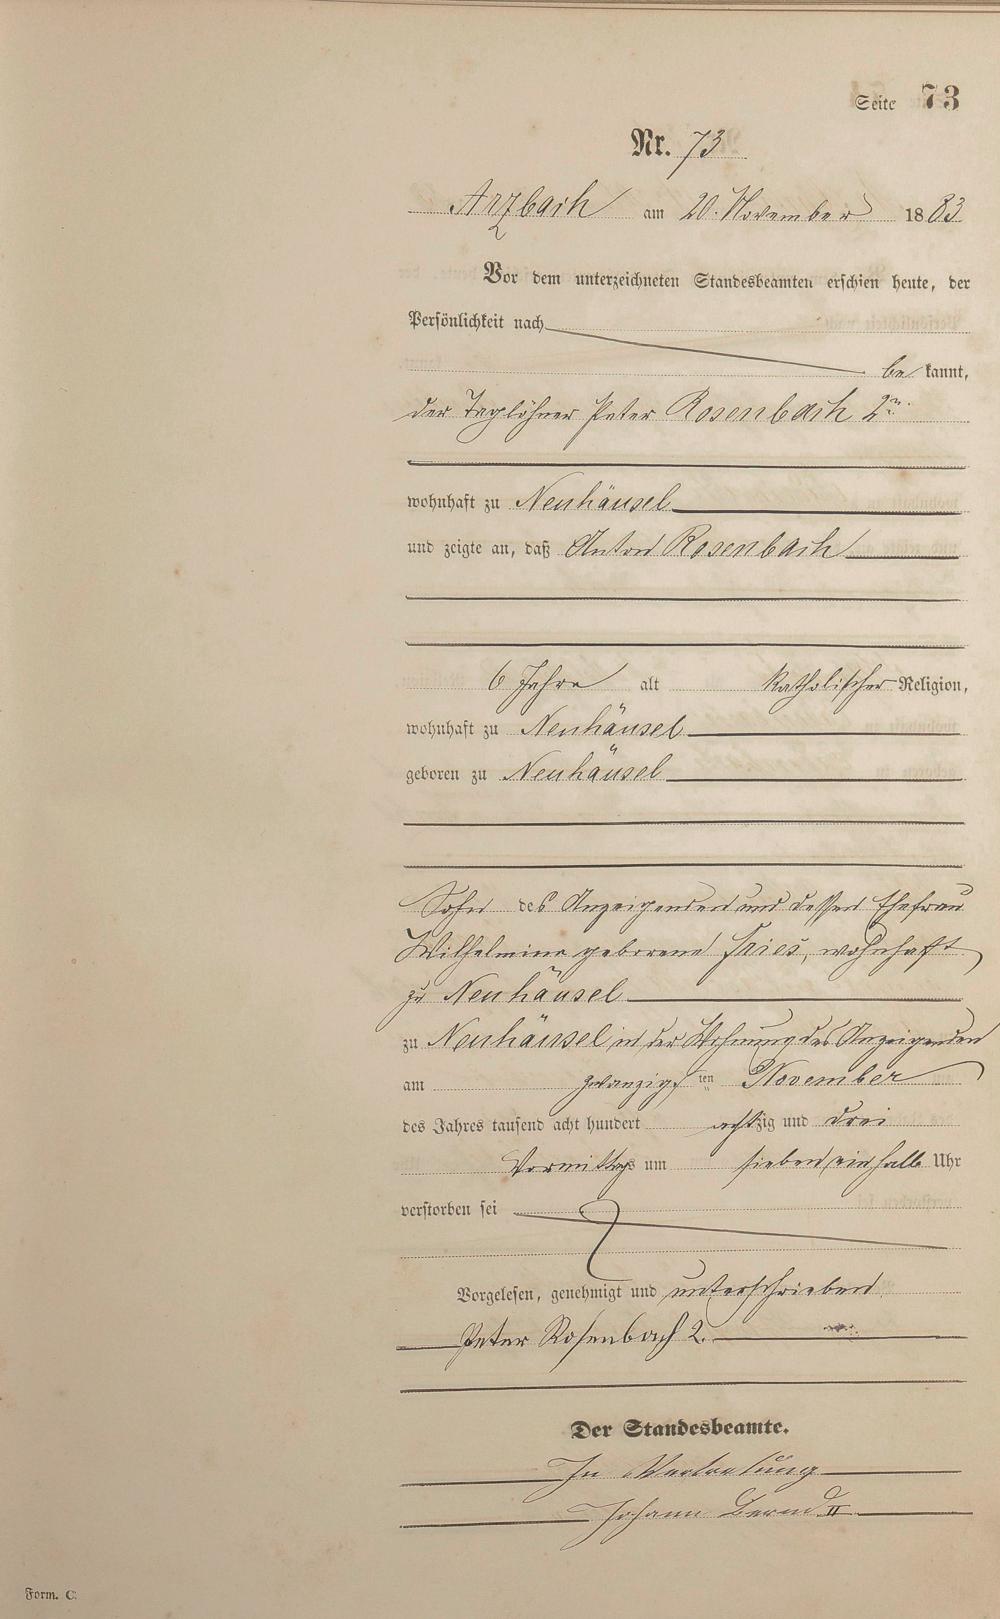 Seite 73
Nr. 73
Arzbach am 20. November 1883
Vor dem unterzeichneten Standesbeamten erschien heute, der
Persönlichkeit nach
be kannt,
der Taglöhner Peter Rosenbach 2r.
wohnhaft zu Neuhäusel
und zeigte an, daß Anton Rosenbach
6 Jahre alt katholischer Religion,
wohnhaft zu Neuhäusel
geboren zu Neuhäusel
Sohn des Anzeigenden und dessen Ehefrau
Wilhelmine geborene Fries, wohnhaft
zu Neuhäusel
zu Neuhäusel in der Wohnung des Anzeigenden
am zwanzigsten November
des Jahres tausend acht hundert achtzig und drei
Vormittags um sieben ein halb Uhr
verstorben sei
Vorgelesen, genehmigt und unterschrieben
Peter Rosenbach 2.
Der Standesbeamte.
In Vertretung
Johann Bernd II
Form. C.